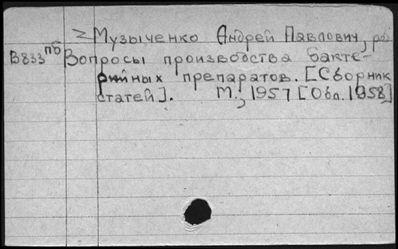 Музыченко Андрей Павлович, ред
В833 пб Вопросы производства бакте-
рийных препаратов. [Сборник
статей]. М., 1957 [Обл. 1958]